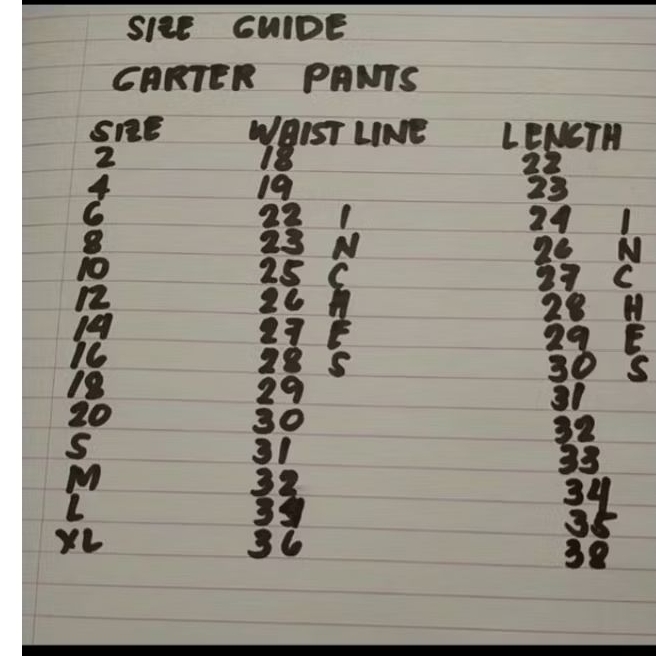 SIZE GUIDE
CARTER PANTS
SIZE WAIST LINE LENGTH
2 18 22
4 19 23
6 22 I 24 I
8 23 N 26 N
10 25 C 27 C
12 26 H 28 H
14 27 E 29 E
16 28 S 30 S
18 29 31
20 30 32
S 31 33
M 32 34
L 34 35
XL 36 38